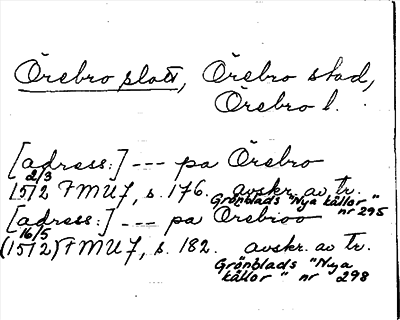 Örebro slott, Örebro stad,
Örebro l.
[adress:] --- pa Örebro
2/3
1512 FMU 7, s. 176. avskr. av tr.
Grönblads "Nya källor"
nr 295
[adress:] --- pa Örebroo
16/5
(1512) FMU 7, s. 182. avskr. av tr.
Grönblads "Nya
källor" nr 298